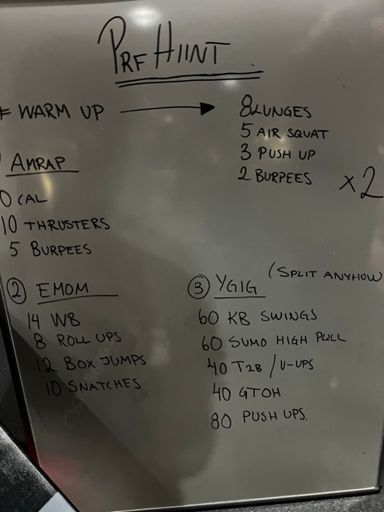 PRF HIINT
WARM UP → 8 LUNGES
5 AIR SQUAT
3 PUSH UP
2 BURPEES X2
AMRAP
0 CAL
10 THRUSTERS
5 BURPEES
② EMOM
14 WB
8 ROLL UPS
12 BOX JUMPS
10 SNATCHES
③ YGIG (SPLIT ANYHOW
60 KB SWINGS
60 SUMO HIGH PULL
40 T2B / V-UPS
40 GTOH
80 PUSH UPS.